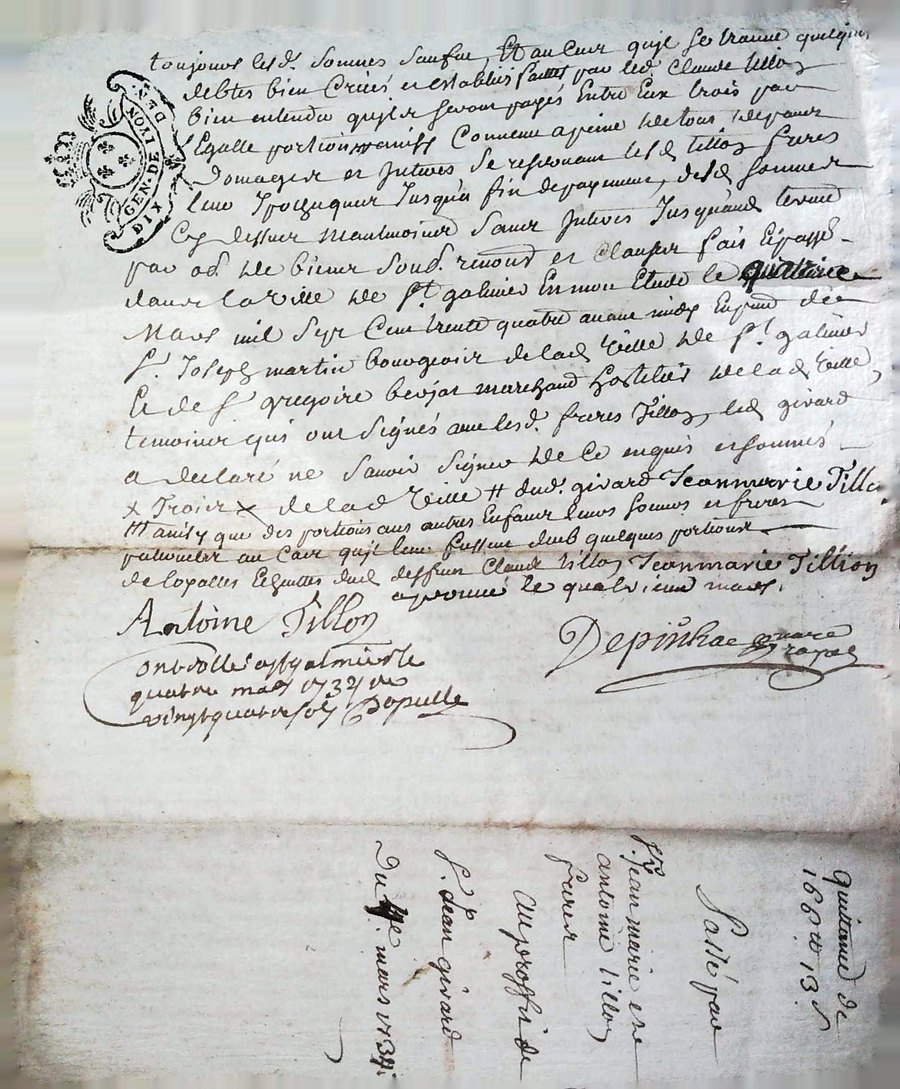 GEN. DE LYON
DIX DEN
toujours lesd. sommes sauf au cas qu'il se trouve quelques
debtes bien créés et establies faittes par led. Claude Tillon
bien entendu qu'ils seront payés Entre Eux trois par
Egalle portion Convenu a peine de tous depans
Domages et Intrets se reservant lesd. tillon freres
leur Ipotheque Jusqua fin de payement, desd. sommes
Cy dessus neantmoins sans Intrets Jusquaud. terme
par obl. de biens soub. renont. et clauses fait & passé
dans la ville de St. galmier En mon Etude le quatrieme
Mars mil sept Cent trente quatre avant midy En pnce de
Sr. Joseph martin bourgeois de lad. ville de St. galmier
Et de Sr. gregoire marchand hostelier de lad. ville,
temoins qui ont signés avec lesd. freres Tillon, led. girard
a declaré ne savoir signer de ce enquis et sommés
x Trois x de lad. ville # dud. girard Jeanmarie Tillon
ainsy que des portions aux autres Enfans leurs soeurs et freres
au cas qu'il leur fussent deub quelques portions
dud. deffunt Claude tillon Jeanmarie Tillion
approuvé le quatrieme mars.
Antoine Tillon
Depinhac
ontrollé a st galmier le
quatre mars 1734
vingt quatre sols Populle
Quittance de
166 tt 13 s
Passé par
Srs. Jean marie et
antoine tillon
freres
au proffit de
Sr. Jean girard
Du 4e. mars 1734.